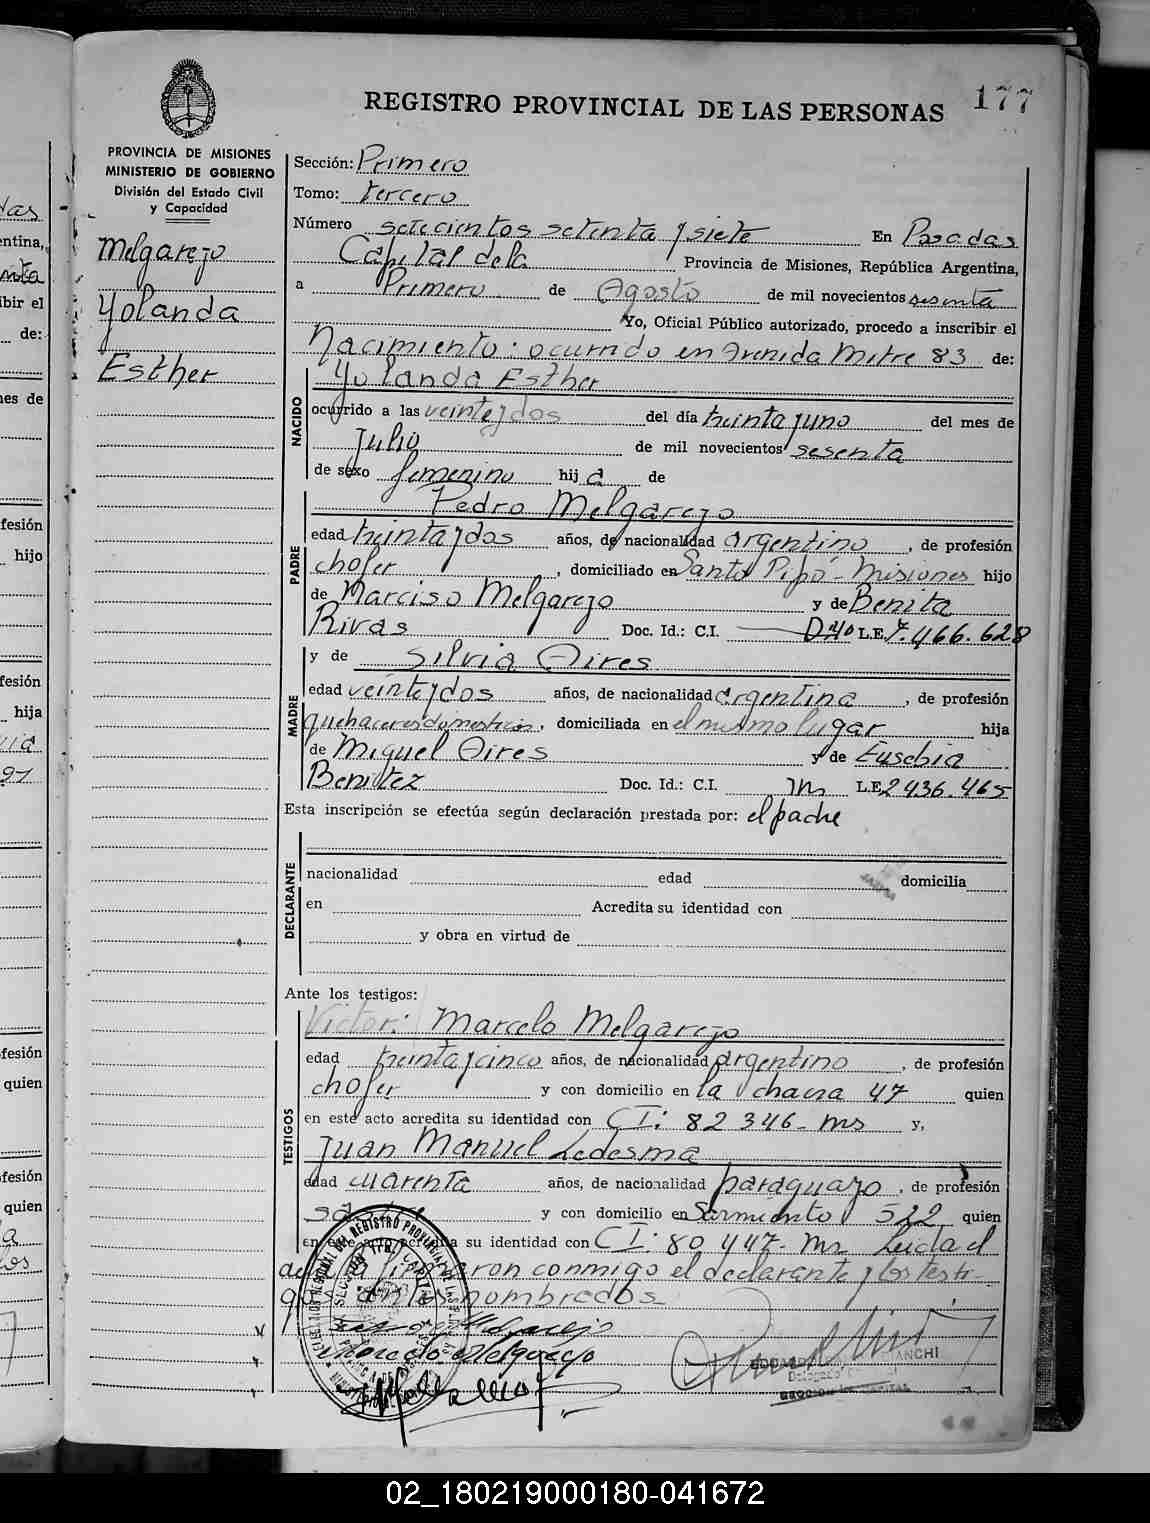 177
REGISTRO PROVINCIAL DE LAS PERSONAS
PROVINCIA DE MISIONES
MINISTERIO DE GOBIERNO
División del Estado Civil
y Capacidad
Melgarejo
Yolanda
Esther
Sección: Primero
Tomo: tercero
Número setecientos setenta y siete En Posadas
Capital de la Provincia de Misiones, República Argentina,
a Primero de Agosto de mil novecientos sesenta
Yo, Oficial Público autorizado, procedo a inscribir el
Nacimiento: ocurrido en Avenida Mitre 83 de:
NACIDO
Yolanda Esther
ocurrido a las veinte y dos del día treinta y uno del mes de
Julio de mil novecientos sesenta
de sexo femenino hija de
PADRE
Pedro Melgarejo
edad treinta y dos años, de nacionalidad argentino, de profesión
chofer, domiciliado en Santo Pipó - Misiones hijo
de Marciso Melgarejo y de Benita
Rivas Doc. Id.: C.I. L.E. 7.466.628
MADRE
y de Silvia Aires
edad veinte y dos años, de nacionalidad argentina, de profesión
quehaceres domesticos, domiciliada en el mismo lugar hija
de Miguel Aires y de Eusebia
Benitez Doc. Id.: C.I. m L.E. 2436.465
Esta inscripción se efectúa según declaración prestada por: el padre
DECLARANTE
nacionalidad edad domicilia
en Acredita su identidad con
y obra en virtud de
Ante los testigos:
TESTIGOS
Victor: Marcelo Melgarejo
edad treinta y cinco años, de nacionalidad argentino, de profesión
chofer y con domicilio en la chacra 47 quien
en este acto acredita su identidad con CI: 82346- ms y,
Juan Manuel Ledesma
edad cuarenta años, de nacionalidad paraguayo, de profesión
sastre y con domicilio en Sarmiento 522 quien
en este acto acredita su identidad con CI: 80447- Ms Leida el
acta firmaron conmigo el declarante y los testi-
gos antes nombrados-
Melgarejo
Marcelo Melgarejo
02_180219000180-041672